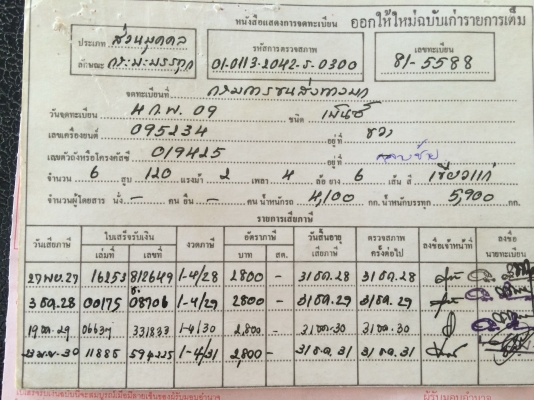 หนังสือแสดงการจดทะเบียน ออกให้ใหม่ฉบับเก่ารายการเต็ม
ประเภท ส่วนบุคคล รหัสการตรวจสภาพ เลขทะเบียน
ลักษณะ กระบะบรรทุก 01-0113-2042-ร-0300 81-5588
จดทะเบียนที่ กรมการขนส่งทางบก
วันจดทะเบียน 4 ก.พ. 09 ชนิด เบ๊นซ์
เลขเครื่องยนต์ 095234 อยู่ที่ ขวา
เลขตัวถังหรือโครงคัสซี 019425 อยู่ที่
จำนวน 6 สูบ 120 แรงม้า 2 เพลา 4 ล้อ ยาง 6 เส้น สี เขียวแก่
จำนวนผู้โดยสาร นั่ง — คน ยืน — คน น้ำหนักรถ 4,100 กก. น้ำหนักบรรทุก 5,900 กก.
รายการเสียภาษี
วันเสียภาษี ใบเสร็จรับเงิน งวดภาษี อัตราภาษี วันสิ้นอายุ ตรวจสภาพ ลงชื่อเจ้าหน้าที่ ลงชื่อ
เล่มที่ เลขที่ บาท สต. เสียภาษี ครั้งต่อไป นายทะเบียน
27 พ.ย. 27 16253 812649 1-4/28 2,800 - 31 ธ.ค. 28 31 ธ.ค. 28
3 ธ.ค. 28 00175 08706 1-4/29 2,800 - 31 ธ.ค. 29 31 ธ.ค. 29
19 ธ.ค. 29 06637 331833 1-4/30 2,800 - 31 ธ.ค. 30 31 ธ.ค. 30
30 11885 594225 1-4/31 2,800 - 31 ธ.ค. 31 31 ธ.ค. 31